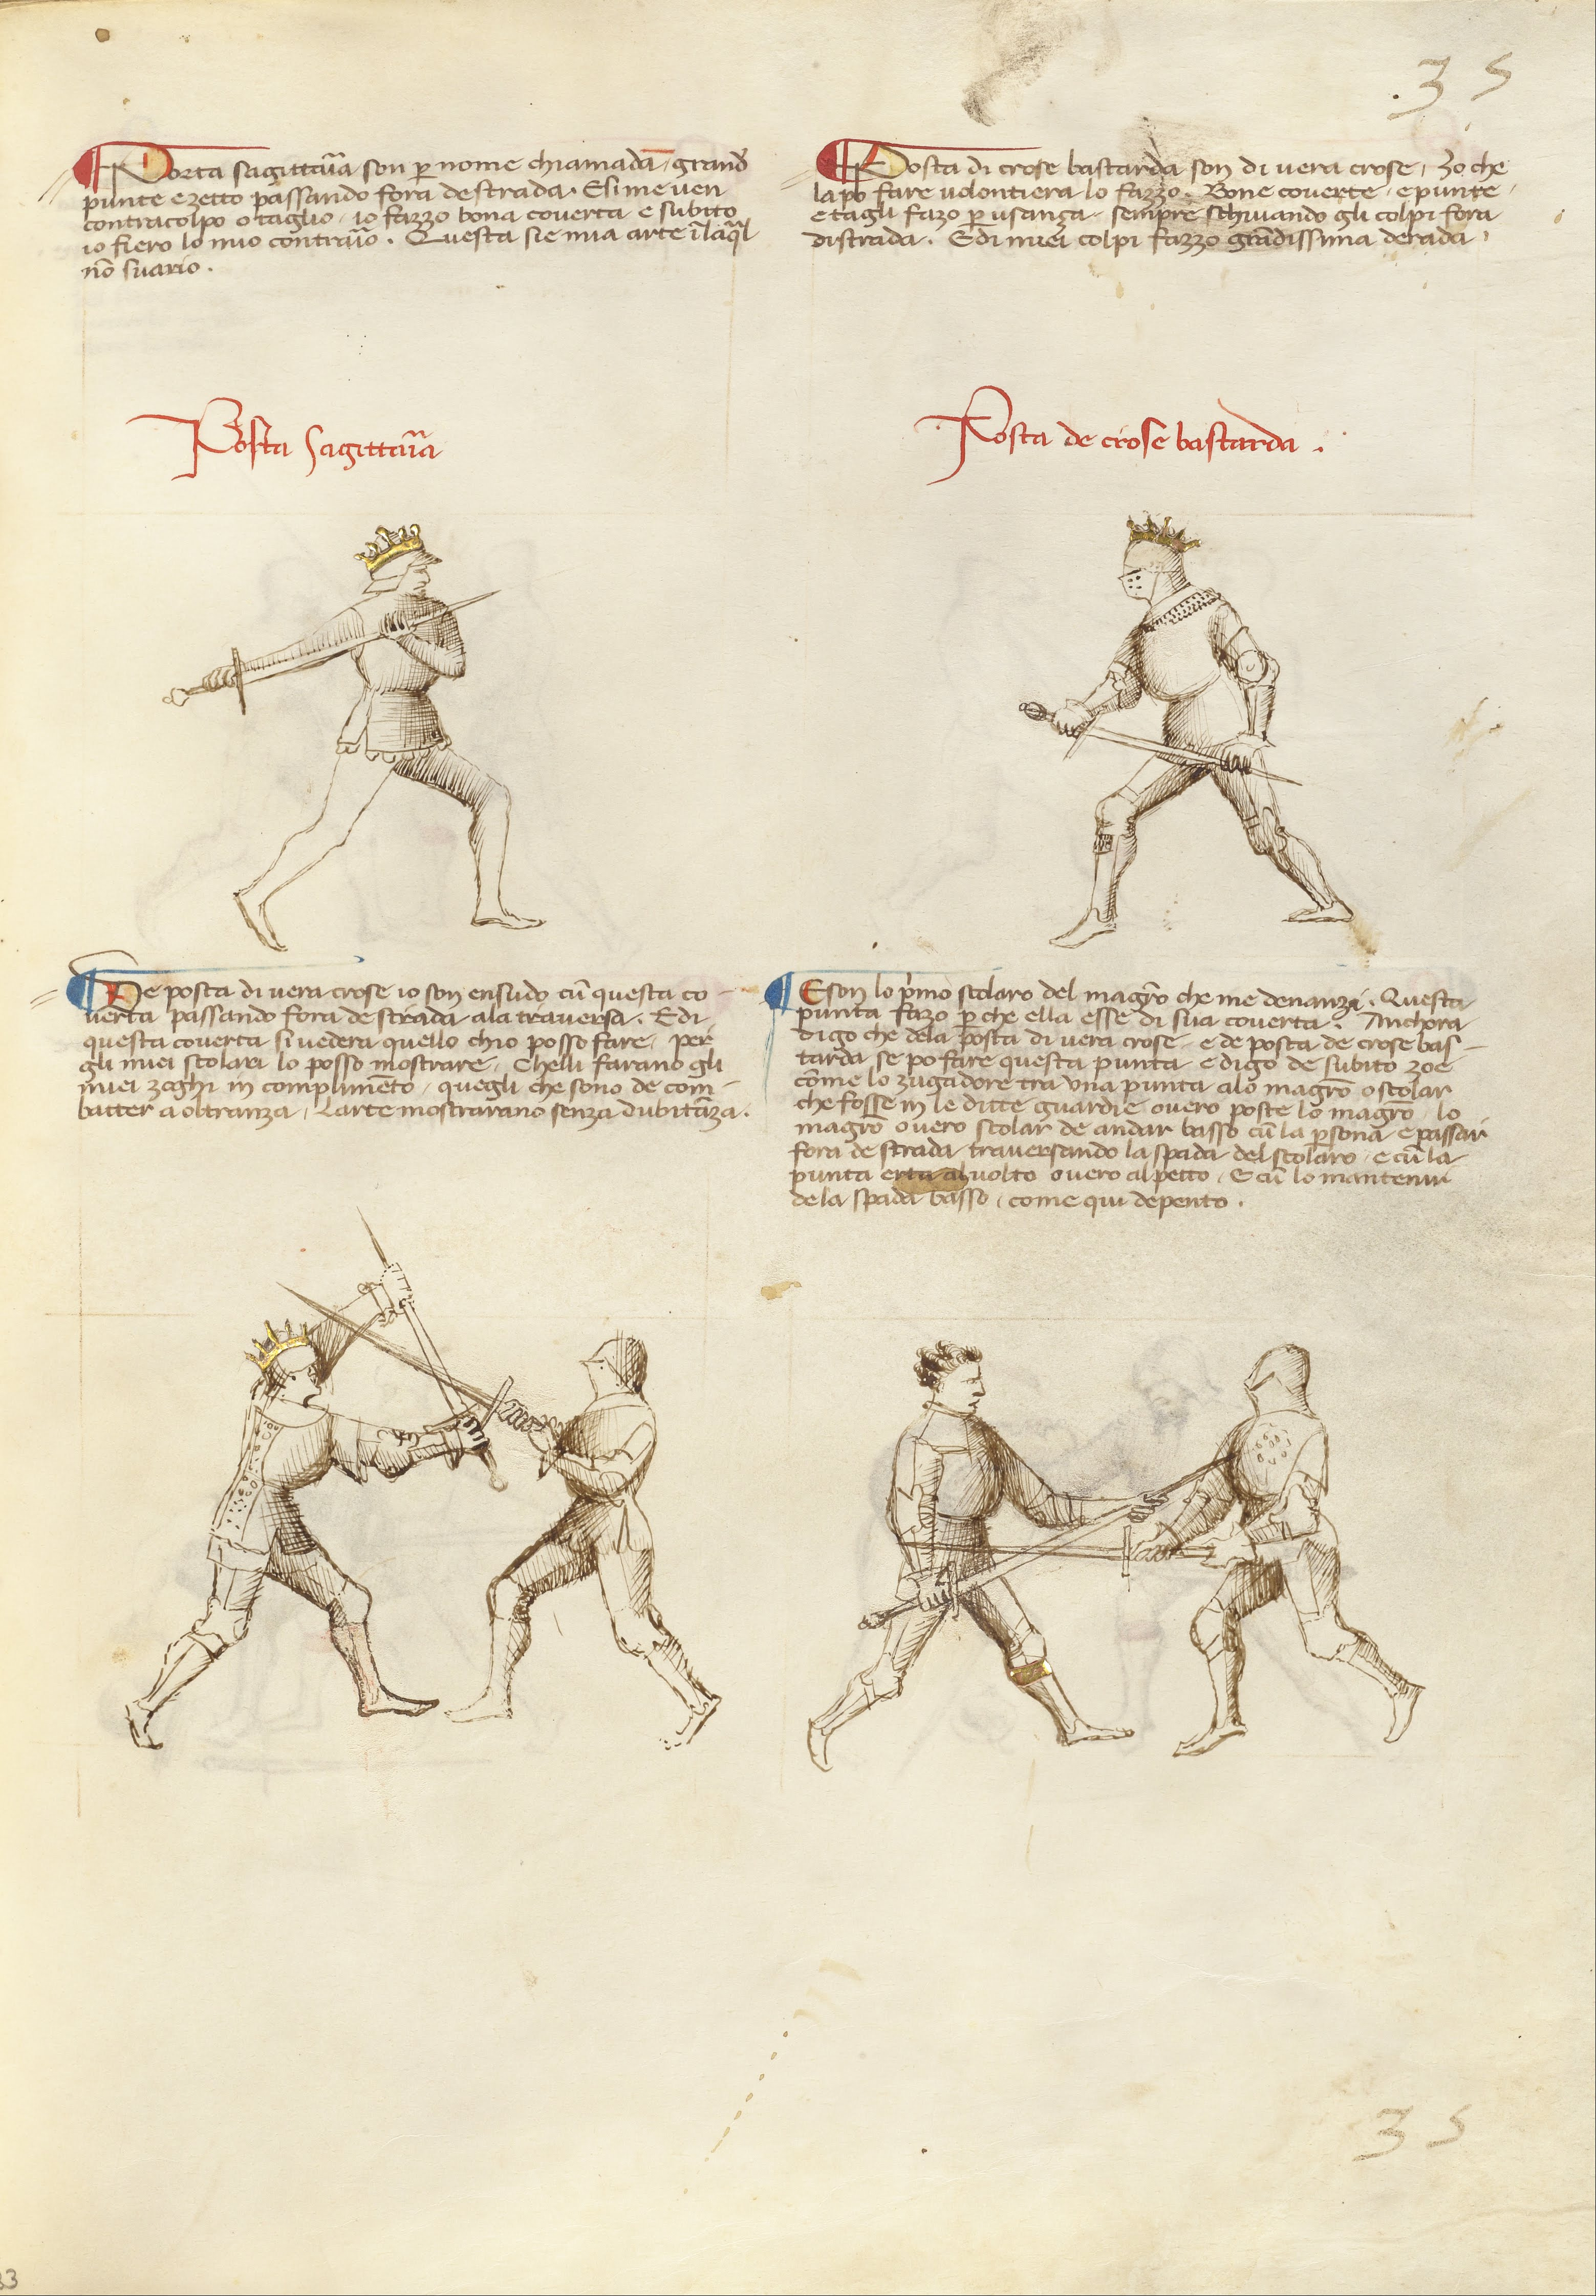 35
Posta sagittaũa son ꝑ nome chiamada, grand̕
punte e zetto passando fora de strada. E si me ven
contra colpo o taglio, io fazzo bona coverta e subito
io fiero lo mio contraũo. Questa sie mia arte ĩ la q̃l
nõ suario.
Posta di crose bastarda son di vera crose, zo che
la po fare volontiera lo fazzo. Bone coverte, e punte,
e tagli fazo ꝑ usanza, sempre schivando gli colpi fora
di strada. E di miei colpi fazzo grãdissima derada,
Posta Sagittaũa
Posta de crose bastarda.
De posta di vera crose io son ensudo cũ questa co-
verta passando fora de strada ala traversa. E di
questa coverta si vedera quello ch'io posso fare, per
gli miei scolari lo posso mostrare, Chelli farano gli
miei zoghi in complimẽto, quegli che sono de com-
batter a oltranza, L'arte mostrarano senza dubitãza.
E son lo p̃mo scolaro del magr̃o che me denanzi. Questa
punta fazo ꝑ che ella esse di sua coverta. Anchora
digo che dela posta di vera crose, e de posta de crose bas-
tarda se po fare questa punta, e digo de subito zoe
cõme lo zugadore tra una punta alo magr̃o o scolar
che fosse in le ditte guardie overo poste lo magr̃o, lo
magr̃o overo scolar de andar basso cũ la ꝑsona e passar
fora de strada traversando la spada del scolaro, e cũ la
punta erta al volto overo al petto, E cũ lo mantenir
dela spada basso, come qui depento.
35
33